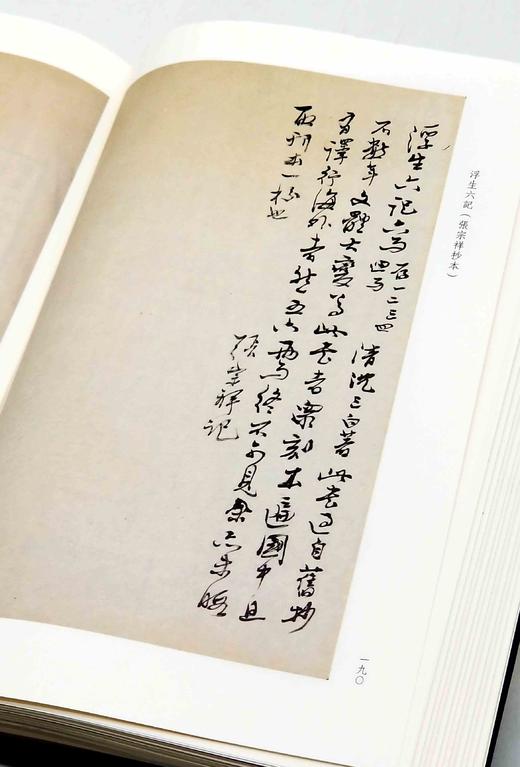 浮生六記（張宗祥抄本）
浮生六記六卷 存一二三四 清沈三白著 此書過自舊抄
不數年文體大變 此書者眾刻本遍國中且
有譯行海外者然五六兩卷終不可見余亦未
所刊本一校也
宗祥記
一九〇